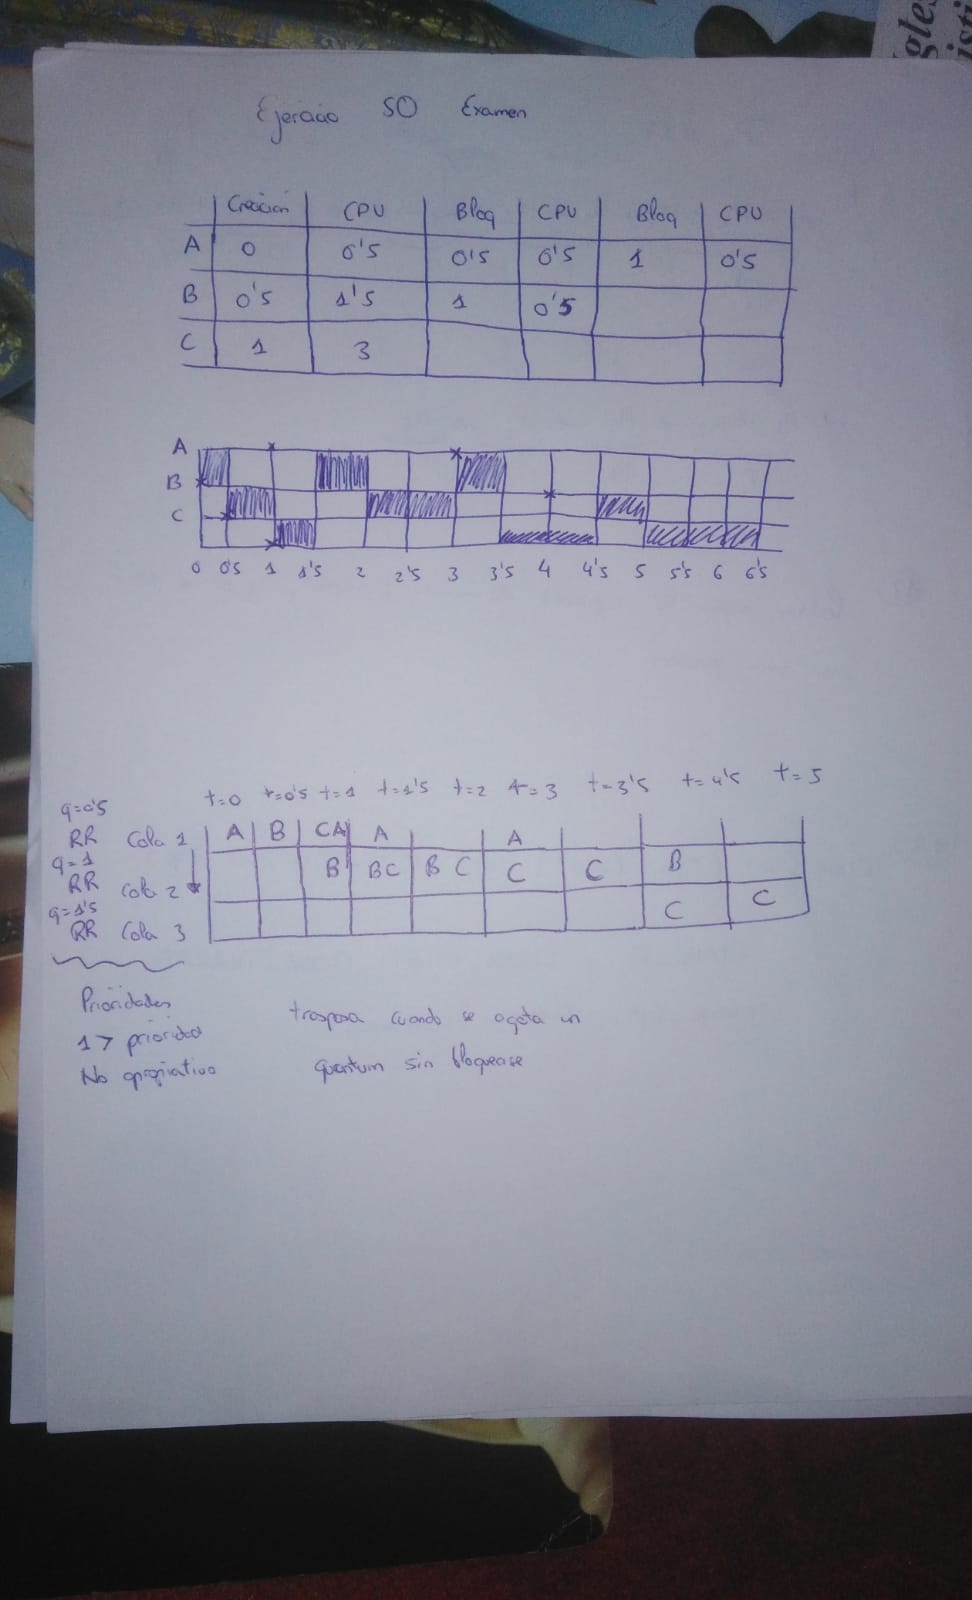 Ejercicio SO Examen
Creación CPU Bloq CPU Bloq CPU
A 0 0'5 0'5 0'5 1 0'5
B 0'5 1'5 1 0'5
C 1 3
A
B
C
0 0'5 1 1'5 2 2'5 3 3'5 4 4'5 5 5'5 6 6'5
t=0 t=0'5 t=1 t=1'5 t=2 t=3 t=3'5 t=4'5 t=5
q=0'5
RR Cola 1 A B CA A A
q=1
RR Cola 2 B BC B C C C B
q=1'5
RR Cola 3 C C
Prioridades
1 > prioridad
No apropiativo
traspasa cuando se agota un
quantum sin bloquease